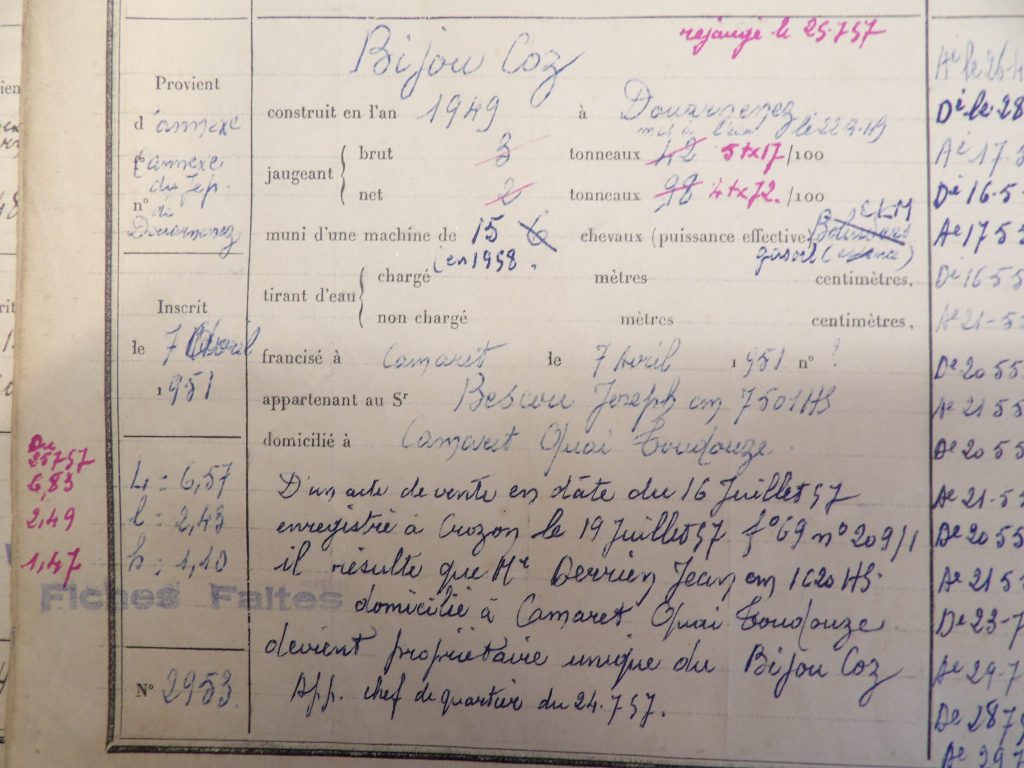 rejaugé le 25.7.57
Bijou Coz
Provient
d'annexe
l'annexe
du Jep.
n° de
Douarnenez
construit en l'an 1949 à Douarnenez
mis à l'eau le 22.9.49
jaugeant
brut 3 tonneaux 42 5tx17/100
net 2 tonneaux 98 4tx72./100
muni d'une machine de 15 6 chevaux (puissance effective) CLM
(en 1958. gasoil (essence)
tirant d'eau
chargé mètres centimètres,
non chargé mètres centimètres,
Inscrit
le 7 Avril
1951
francisé à Camaret le 7 Avril 1951 n° ?
appartenant au Sr Bescou Joseph Cm 7501 HS
domicilié à Camaret Quai Toudouze.
Du
25757
6,83
2,49
1,47
L = 6,57
l = 2,43
h = 1,10
Fiches Faites
N° 2953
D'un acte de vente en dâte du 16 Juillet 57
enregistré à Crozon le 19 Juillet 57 f° 69 n° 209/1
il résulte que Mr Derrien Jean Cm 1620 HS.
domicilié à Camaret Quai Toudouze
devient propriétaire unique du Bijou Coz
App. chef de quartier du 24.7.57.
Ae le 26.4
De le 28
Ae 17.5
De 16.5
Ae 17 53
De 16 55
Ae 21-55
De 20 55
Ae 21 55
De 20 55
Ae 21-55
De 20 55
Ae 21 55
De 23-7
Ae 29.7
De 28 79
Ae 297